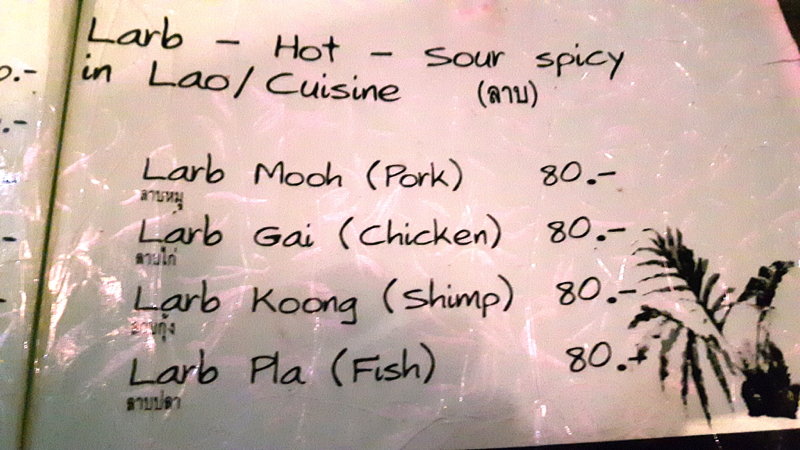 Larb - Hot - Sour spicy
in Lao/Cuisine (ลาบ)
Larb Mooh (Pork) 80.-
ลาบหมู
Larb Gai (Chicken) 80.-
ลาบไก่
Larb Koong (Shimp) 80.-
ลาบกุ้ง
Larb Pla (Fish) 80.-
ลาบปลา